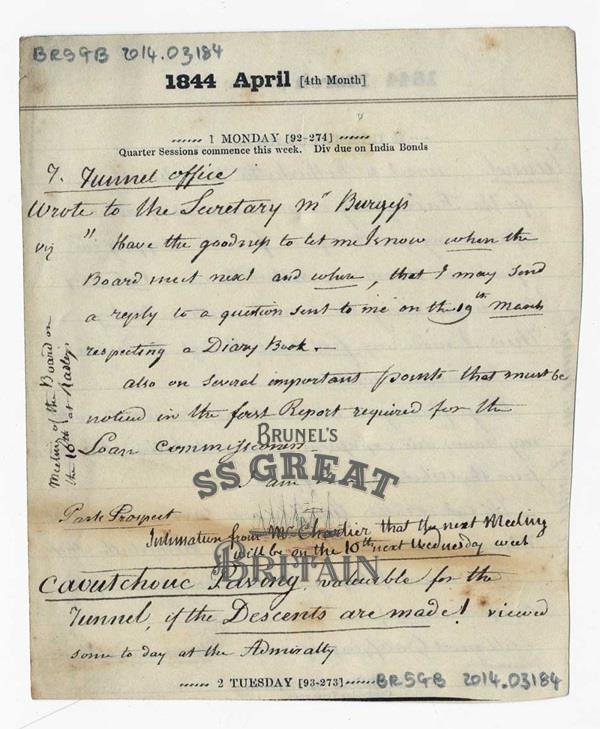 BRSGB 2014.03184
1844 April [4th Month]
1 MONDAY [92-274]
Quarter Sessions commence this week. Div due on India Bonds
7. Tunnel office
Wrote to the Secretary Mr Burgess
viz " Have the goodness to let me know when the
Board meet next and where, that I may send
a reply to a question sent to me on the 19th March
respecting a Diary Book.
also on several important points that must be
noticed in the first Report required for the
Loan Commissioners
I am
Meeting of the Board on
the 10th at Radleys
Park Prospect
Intimation from Mr Charlier that the next Meeting
will be on the 10th next Wednesday week
Caoutchouc Paving valuable for the
Tunnel, if the Descents are made! viewed
some to day at the Admiralty
2 TUESDAY [93-273]
BRSGB 2014.03184
BRUNEL'S
SS GREAT
BRITAIN